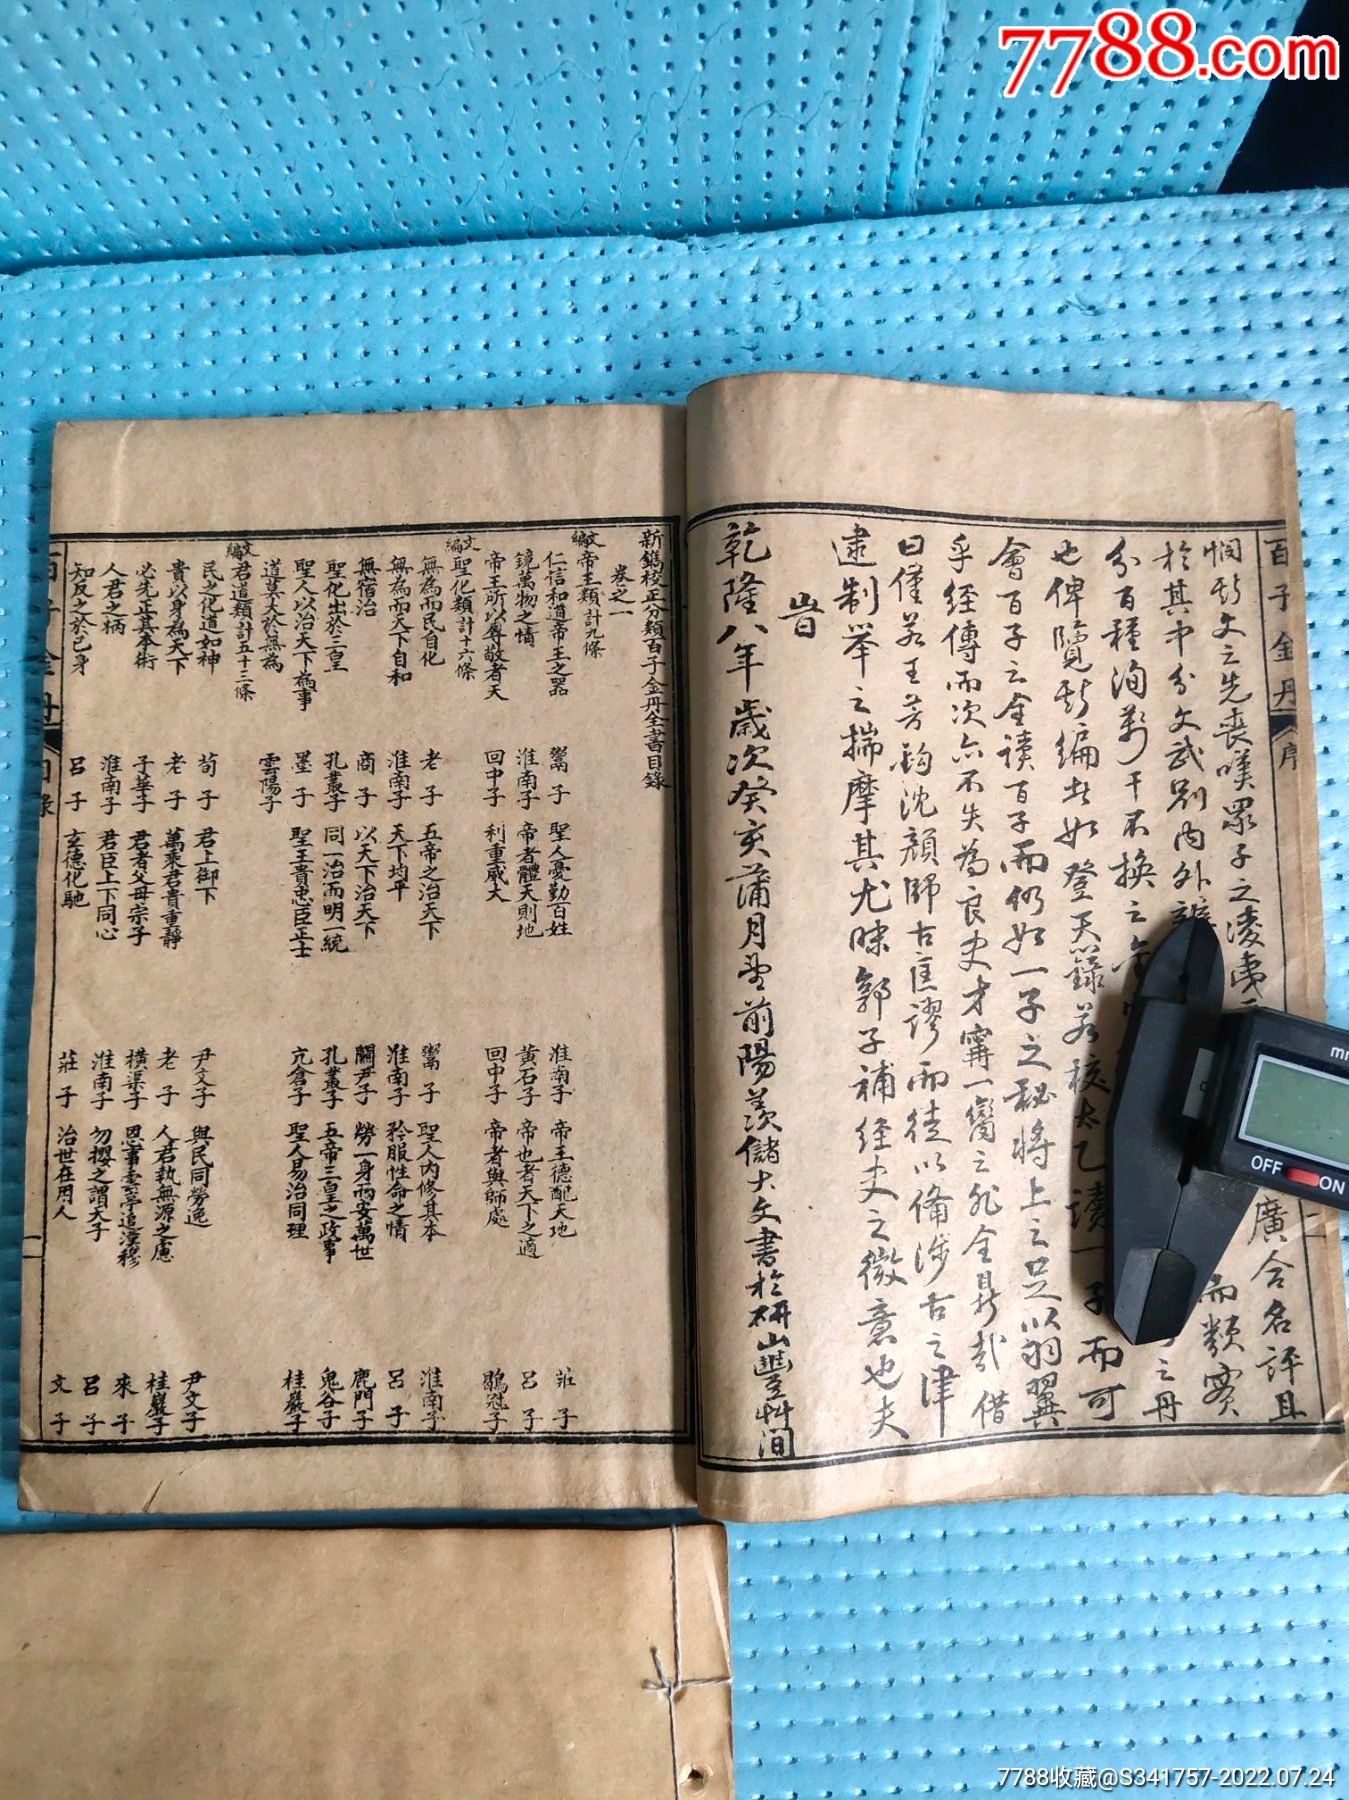 7788.com
百子金丹 序
憫斯文之先喪嘆眾子之淩夷
廣合名評且
於其中分文武別內外
而類賓
分百種洵萬千不換之金
之丹
也俾覽斯編者如登天籙若校太乙讀一子而可
會百子之全讀百子而仍如一子之秘將上之足以羽翼
乎經傳而次亦不失為良史才寧一臠之非全鼎哉借
曰僅若王芳鈎沈顏師古匡謬而徒以備涉古之津
逮制舉之揣摩其尤昧郭子補經史之微意也夫
旹
乾隆八年歲次癸亥蒲月望前陽羨儲大文書於研山豐草間
新鐫校正分類百子金丹全書目錄
卷之一
文編 帝王類計九條
仁信和道帝王之器 鬻子 聖人憂勤百姓 淮南子 帝王德配天地 莊子
鏡萬物之情 淮南子 帝者體天則地 黃石子 帝也者天下之適 呂子
帝王所以尊敬者天 回中子 利重威大 回中子 帝者與師處 鶡冠子
文編 聖化類計十六條
無為而民自化 老子 五帝之治天下 鬻子 聖人內修其本 淮南子
無為而天下自和 淮南子 天下均平 淮南子 矜服性命之情 呂子
無宿治 商子 以天下治天下 關尹子 勞一身而安萬世 鹿門子
聖化出於三皇 孔叢子 同一治而明一統 孔叢子 五帝三皇之政事 鬼谷子
聖人以治天下為事 墨子 聖王貴忠臣正士 亢倉子 聖人易治同理 桂巖子
道莫大於無為 雲陽子
文編 君道類計五十三條
民之化道如神 荀子 君上御下 尹文子 與民同勞逸 尹文子
貴以身為天下 老子 萬乘君貴重靜 老子 人君執無源之慮 桂巖子
必先正其本術 子華子 君者父母宗子 橫渠子 思事 來子
人君之柄 淮南子 君臣上下同心 淮南子 勿攖之謂天子 呂子
知反之於己身 呂子 玄德化馳 莊子 治世在用人 文子
百子金丹 目錄 一
mm
OFF
ON
7788收藏@S341757-2022.07.24